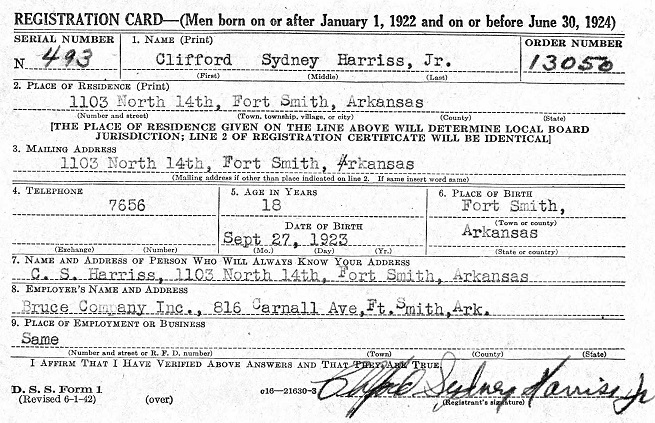 REGISTRATION CARD—(Men born on or after January 1, 1922 and on or before June 30, 1924)
SERIAL NUMBER 1. NAME (Print) ORDER NUMBER
N 493 Clifford Sydney Harriss, Jr. 13050
(First) (Middle) (Last)
2. PLACE OF RESIDENCE (Print)
1103 North 14th, Fort Smith, Arkansas
(Number and street) (Town, township, village, or city) (County) (State)
[THE PLACE OF RESIDENCE GIVEN ON THE LINE ABOVE WILL DETERMINE LOCAL BOARD
JURISDICTION; LINE 2 OF REGISTRATION CERTIFICATE WILL BE IDENTICAL]
3. MAILING ADDRESS
1103 North 14th, Fort Smith, Arkansas
(Mailing address if other than place indicated on line 2. If same insert word same)
4. TELEPHONE 5. AGE IN YEARS 6. PLACE OF BIRTH
7656 18 Fort Smith,
DATE OF BIRTH (Town or county)
Sept 27, 1923 Arkansas
(Exchange) (Number) (Mo.) (Day) (Yr.) (State or country)
7. NAME AND ADDRESS OF PERSON WHO WILL ALWAYS KNOW YOUR ADDRESS
C. S. Harriss, 1103 North 14th, Fort Smith, Arkansas
8. EMPLOYER'S NAME AND ADDRESS
Bruce Company Inc., 816 Carnall Ave,Ft.Smith,Ark.
9. PLACE OF EMPLOYMENT OR BUSINESS
Same
(Number and street or R. F. D. number) (Town) (County) (State)
I AFFIRM THAT I HAVE VERIFIED ABOVE ANSWERS AND THAT THEY ARE TRUE.
D. S. S. Form 1 c16—21630-3 Clifford Sydney Harriss Jr
(Revised 6-1-42) (over) (Registrant's signature)